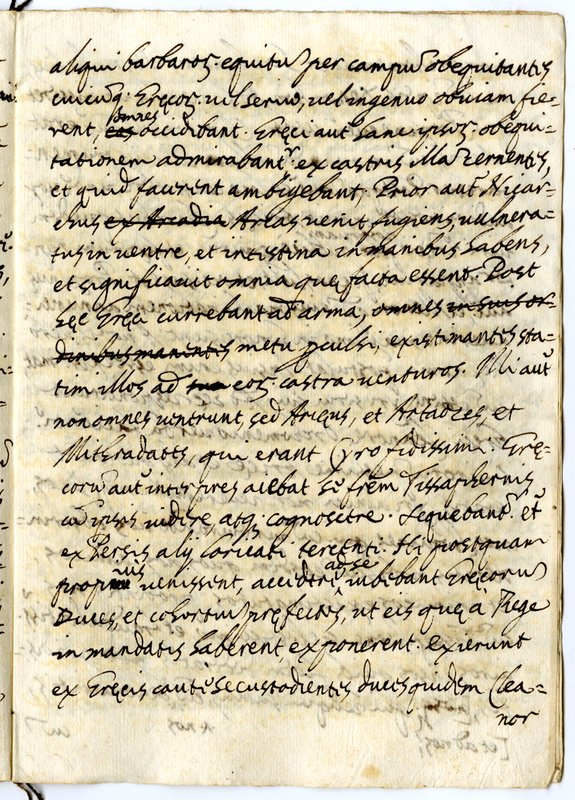 aliqui barbaroꝝ equitũ per campũ obequitantes
cuicũq; Gręcoꝝ, vel servo, vel ingenuo obviam fie-
rent, eos omnes occidebant. Gręci aut̃ hanc ipsoꝝ obequi=
tationem admirabant̃ ex castris illa cernentes,
et quid facerent ambigebant. Prior aut̃ Nicar=
chus ex Arcadia Arcas venit fugiens, vulnera=
tus in ventre, et intestina in manibus habens,
et significavit omnia quę facta essent. Post
hęc Gręci currebant ad arma, omnes in suis or-
dinibus manentes metu pculsi, existimantes sta=
tim illos ad eoꝝ castra venturos. Hi aut̃
non omnes venerunt, sed Arięus, et Artaozes, et
Mithradates, qui erant Cyro fidissimi. Grę=
corũ aut̃ interpres aiebat se fr̃em Tissaphernis
cũ ipsis videre, atq; cognoscere. Sequebant̃ et
ex Persis alij loricati tercenti. Hi postquam
propius venissent, accedere ad se iubebant Gręcorũ
Duces, et cohortũ pręfectos, ut eis quę à Rege
in mandatis haberent exponerent. Exierunt
ex Gręcis cautè se custodientes duces quidem Clea=
nor